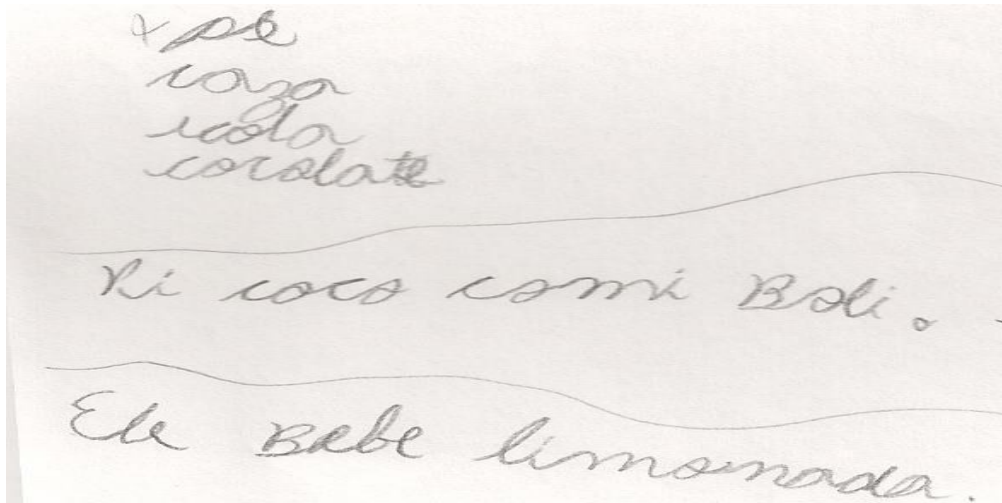 x pe
caza
icola
cocolate
Ri coco comi Boli.
Ele Bebe limonada.